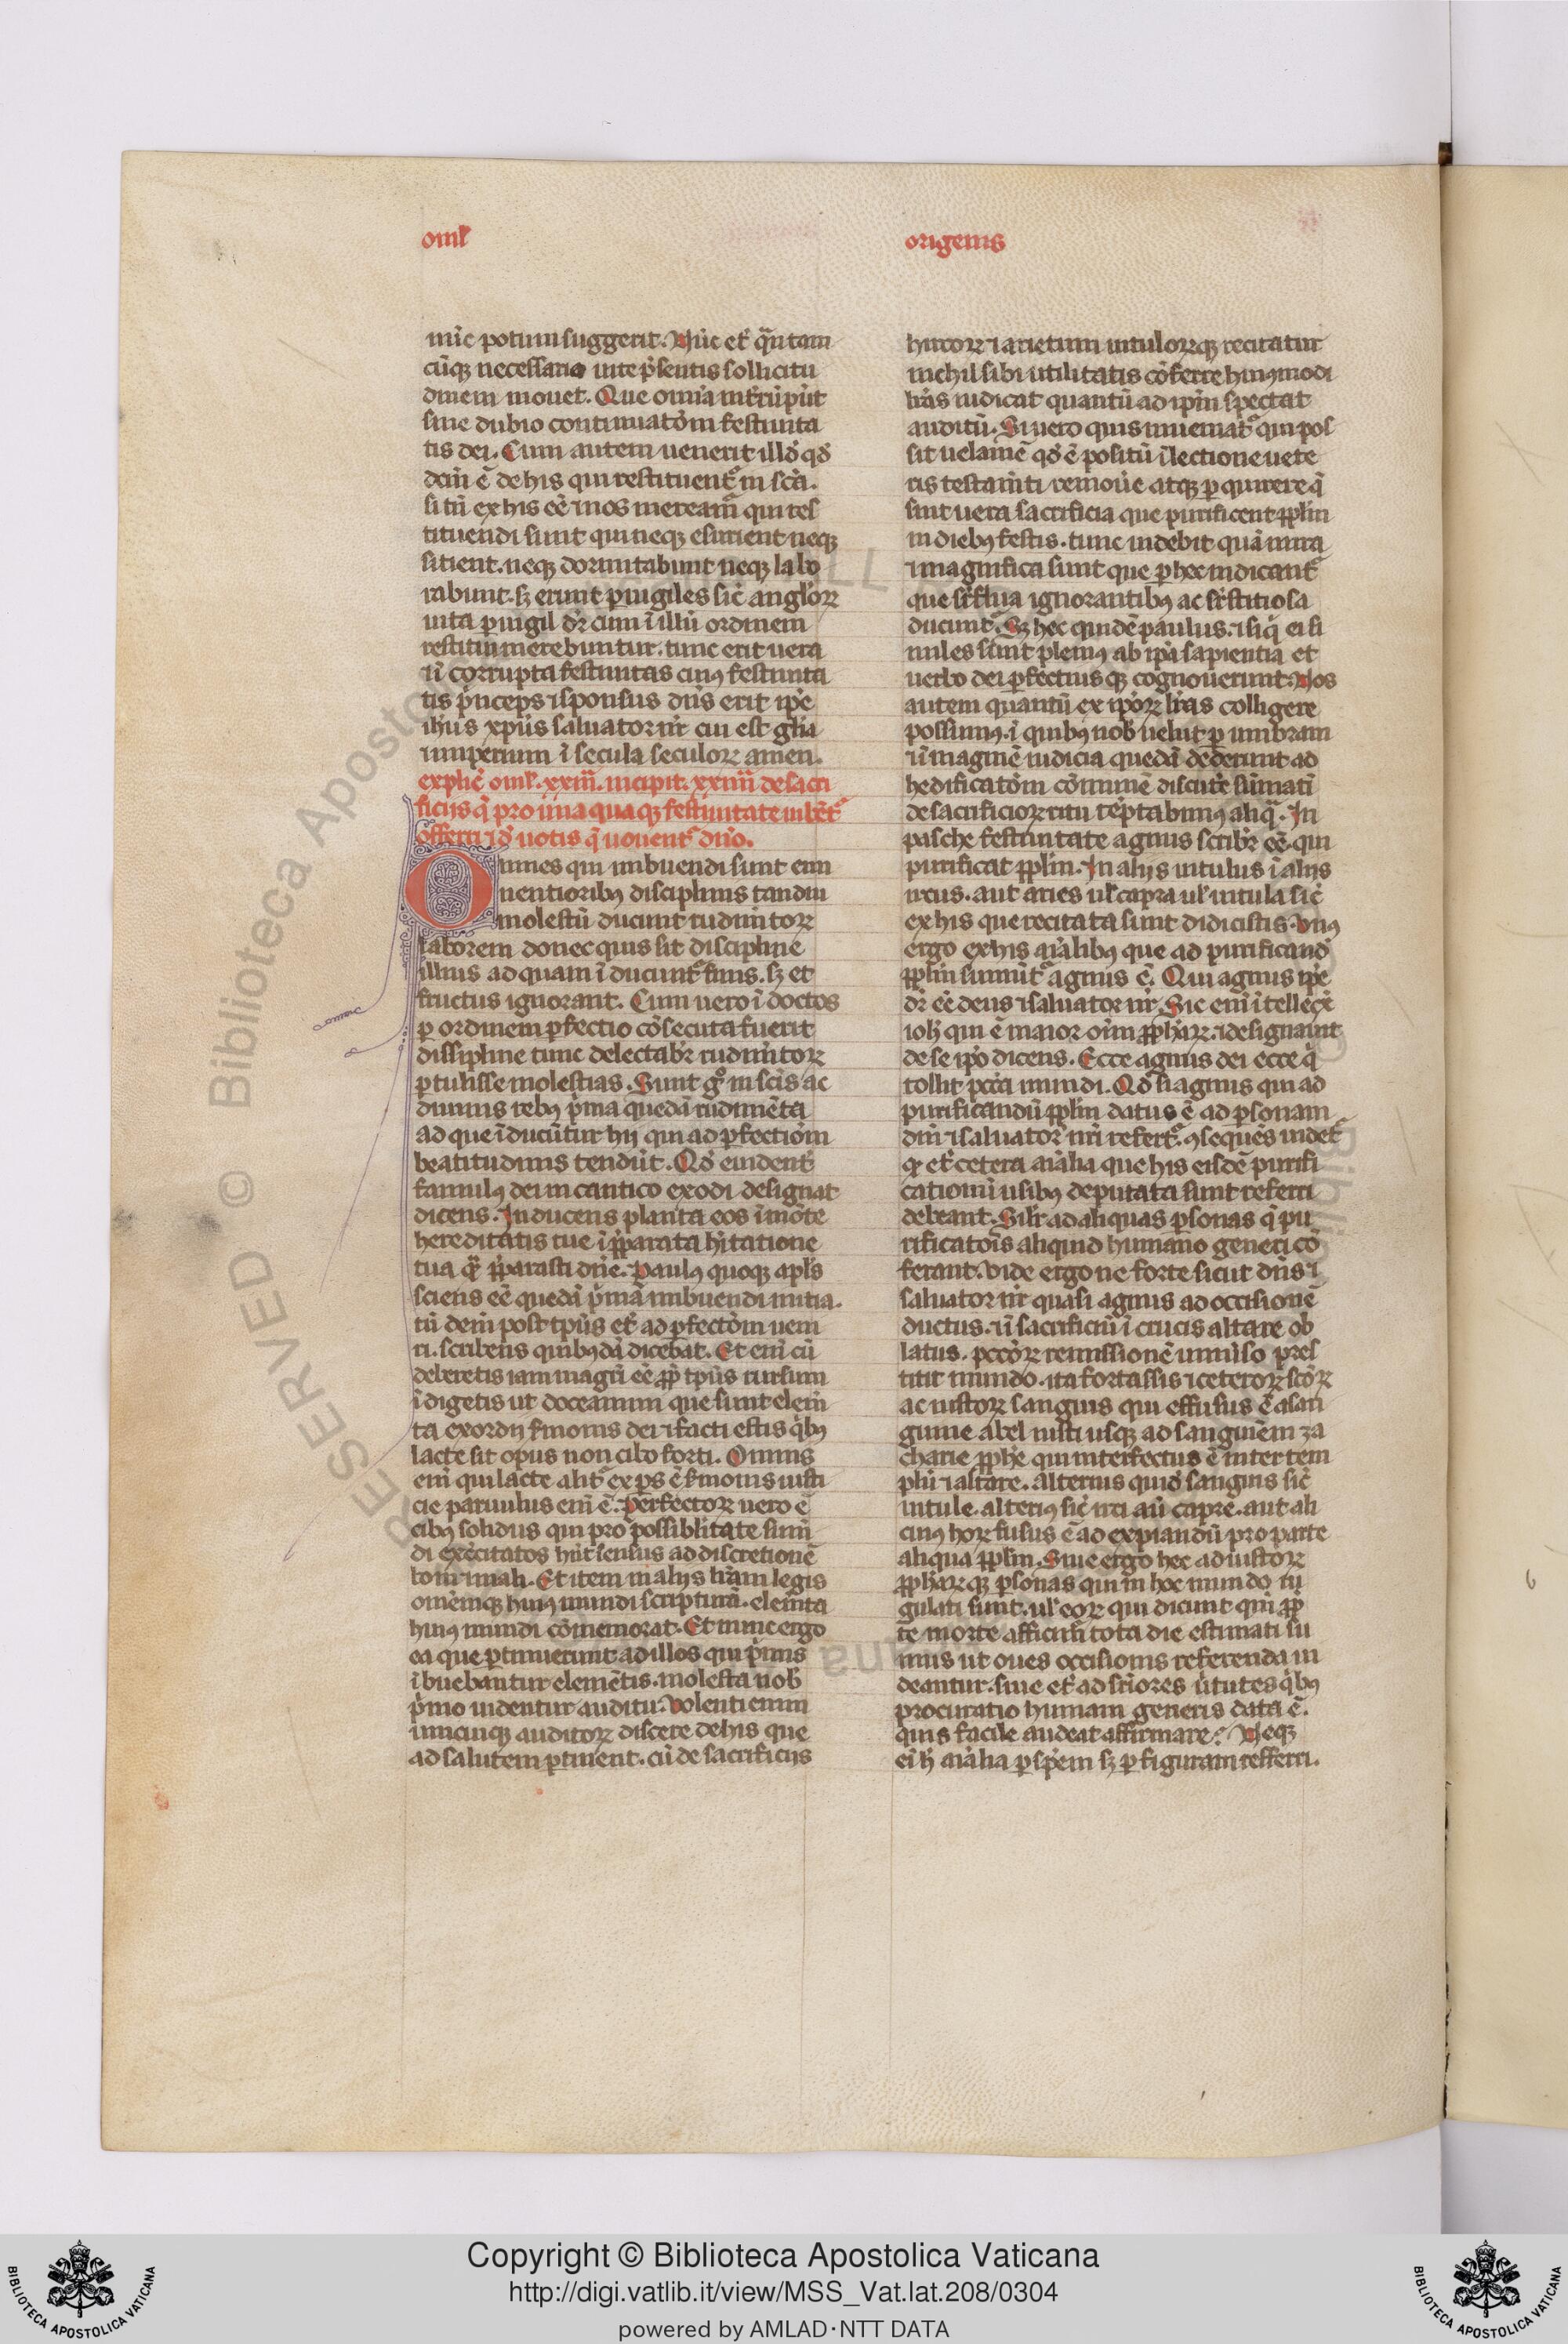 oml'
origenis
nūc potum suggerit. Nūc et q̄ntam
cūq; necessaria uite p̄sentis sollicitu
dinem mouet. Que omīa int̄rūpūt
sine dubio continuatōm festiuita
tis dei. Cum autem uenerit illd̓ qd̓
dcm̄ ē de his qui restituent͛ in scā.
si tn̄ ex his eē ⁊ nos meream͛ qui res
tituendi sunt qui neq; esurient neq;
sitient. neq; dormitabunt neq; labo
rabunt. sꝫ erunt ꝑuigiles sic̄ anglōꝝ
uita ꝑuigil dr̄ cum ī illū ordinem
restitui merebuntur. tunc erit uera
⁊ ī corrupta festiuitas cuiꝰ festiuita
tis p̄nceps ⁊ sponsus dn̄s erit ip̄e
ihūs xp̄us saluator nr̄ cui est gl̄ia
⁊ imperium ī secula seculoꝝ amen.
explic̄ oml'. xxiii. incipit. xxiiii de sacri
ficijs q̄ pro una qua q; festiuitate iubēt͛
offerri ⁊ d̓ uotis q̄ uouent͛ dn̄o.
Omnes qui imbuendi sunt emi
nentioribꝰ disciplinis tandiu
molestū ducunt rudim̄toꝝ
laborem donec quis sit discipline
illius ad quam ī ducunt͛ finis. sꝫ et
fructus ignorant. Cum uero ī doctos
ꝑ ordinem ꝑfectio cōsecuta fuerit
dissipline tunc delectabr̄ rudim̄toꝝ
ꝑtulisse molestias. Sunt gͦ in scīs ac
diuinis rebꝰ p̄ma quedā rudimēta
ad que īducūtur hij qui ad ꝑfectiōm
beatitudinis tendūt. Qd̓ euident̄
famulꝰ dei in cantico exodi designat
dicens. Inducens planta eos ī mōte
hereditatis tue ī p̄parata hītatione
tua qᷓ p̄parasti dn̄e. Paulꝰ quoq; apl̄s
sciens eē quedā p̄ma imbuendi initia.
tū dem̄ post tp̄us et̄ ad ꝑfectōm ueni
ri. scribens quibꝰdā dicebat. Et eni̅ cū
deberetis iam magr̄i eē ꝓp̄ tp̄us rursum
īdigetis ut doceamini que sunt elem̄
ta exordij ẜmonis dei ⁊ facti estis q̄bꝰ
lacte sit opus non cibo forti. Omnis
eni̅ qui lacte alit͛ exps ē ẜmonis iusti
cie paruulus eni̅ ē. Perfectoꝝ uero ē
cibꝰ solidus qui pro possiblitate sum̄
di exercitatos hn̄t sensus ad discretionē
boni ⁊ mali. Et item in alijs līram legis
om̄emq; huiꝰ mundi scripturā. elem̄ta
huiꝰ mundi cōmemorat. Et nunc ergo
ea que ꝑtinuerunt ad illos qui p̄mis
ībuebantur elemētis. molesta nob̄
p̄mo uidentur auditu. Uolenti enim
unicuiq; auditoꝝ discere de his que
ad salutem ꝑtinent. cū de sacrificijs
hircoꝝ ⁊ arietum uituloꝝq; recitatur
nichil sibi utilitatis cōferre huiꝰmodi
līras iudicat quantū ad ip̄m spectat
auditū. Si uero quis inueniat͛ qui pos
sit uelamē qd̓ ē positū ī lectione uete
ris testam̄ti remoūe atq; ꝑquirere q̄
sint uera sacrificia que purificent pp̄lm
in diebꝰ festis. tunc uidebit quā mira
⁊ magnifica sunt que ꝑ hec indicant͛
que sūp̄flua ignorantibꝰ ac sūp̄stitiosa
ducunt͛. Sꝫ hec quidē paulus. ⁊ siq̄ ei si
miles sunt pleniꝰ ab ip̄a sapientia et
uerbo dei ꝑfectiusq; cognouerunt. Nos
autem quantū ex ip̄oꝝ līras colligere
possumꝰ. ī quibꝰ nob̄ uelut ꝑ umbram
⁊ ī maginē iudicia quedā dederunt ad
hedificatōm cōmunē discut̄e sūmatī
de sacrificioꝝ ritu tēptabimꝰ aliqᷓ. In
pasche festiuitate agnus scribr̄ eē. qui
purificat pp̄lm. In alijs uitulus ī alijs
ircus. aut aries ul' capra ul' uitula sic̄
ex his que recitata sunt didicistis. Unꝰ
ergo ex his aīalibꝰ que ad purificand̓
pp̄lm sumūt͛ agnus ē. Qui agnus ip̄e
dr̄ eē deus ⁊ saluator nr̄. Sic eni̅ ītellex̄
ioh̄ qui ē maior oīm ꝓph̄aꝝ. ⁊ designauit
de se ip̄o dicens. Ecce agnus dei ecce q̄
tollit pcc̄a mundi. Qd̓ si agnus qui ad
purificandū pp̄lm datus ē ad ꝑsonam
dn̄i ⁊ saluator̄ nr̄i refert͛. ꝯsequēs uidet͛
qꝫ et̄ cetera aīalia que his eisdē purifi
cationū usibꝰ deputata sunt referri
debeant. Sil'r ad aliquas ꝑsonas q̄ pu
rificatōis aliquid humano generi cō
ferant. Uide ergo ne forte sicut dn̄s ⁊
saluator nr̄ quasi agnus ad occisionē
ductus. ⁊ ī sacrificiū ī crucis altare ob
latus. pccōꝝ remissionē uniūso pres
titit mundo. ita fortassis ⁊ ceteroꝝ scōꝝ
ac iustoꝝ sanguis qui effusus ē a san
guine abel iusti usq; ad sanguinem za
charie ꝓph̄e qui interfectus ē inter tem
plū ⁊ altare. alterius quid̓ sanguis sic̄
uitule. alteriꝰ sic̄ irci aū capre. aut ali
cuiꝰ hoꝝ fusus ē ad expiandū pro parte
aliqua pp̄lm. Siue ergo hec ad iustoꝝ
ꝓph̄aꝝq; ꝑsonas qui in hoc mundo iu
gulati sunt. ul' eoꝝ qui dicunt qm̄ ꝓp̄
te morte afficim̄ tota die estimati su
mus ut oues occisionis referenda ui
deantur. siue et̄ ad sūp̄iores ūtutes q̄bꝰ
procuratio humani generis data ē.
quis facile audeat affirmare. Neq;
eni̅ h̄ aīalia ꝑ spēm sꝫ ꝑ figuram refferri.
RESERVED © Biblioteca Aposto
Copyright © Biblioteca Apostolica Vaticana
http://digi.vatlib.it/view/MSS_Vat.lat.208/0304
powered by AMLAD·NTT DATA
BIBLIOTECA APOSTOLICA VATICANA
BIBLIOTECA APOSTOLICA VATICANA